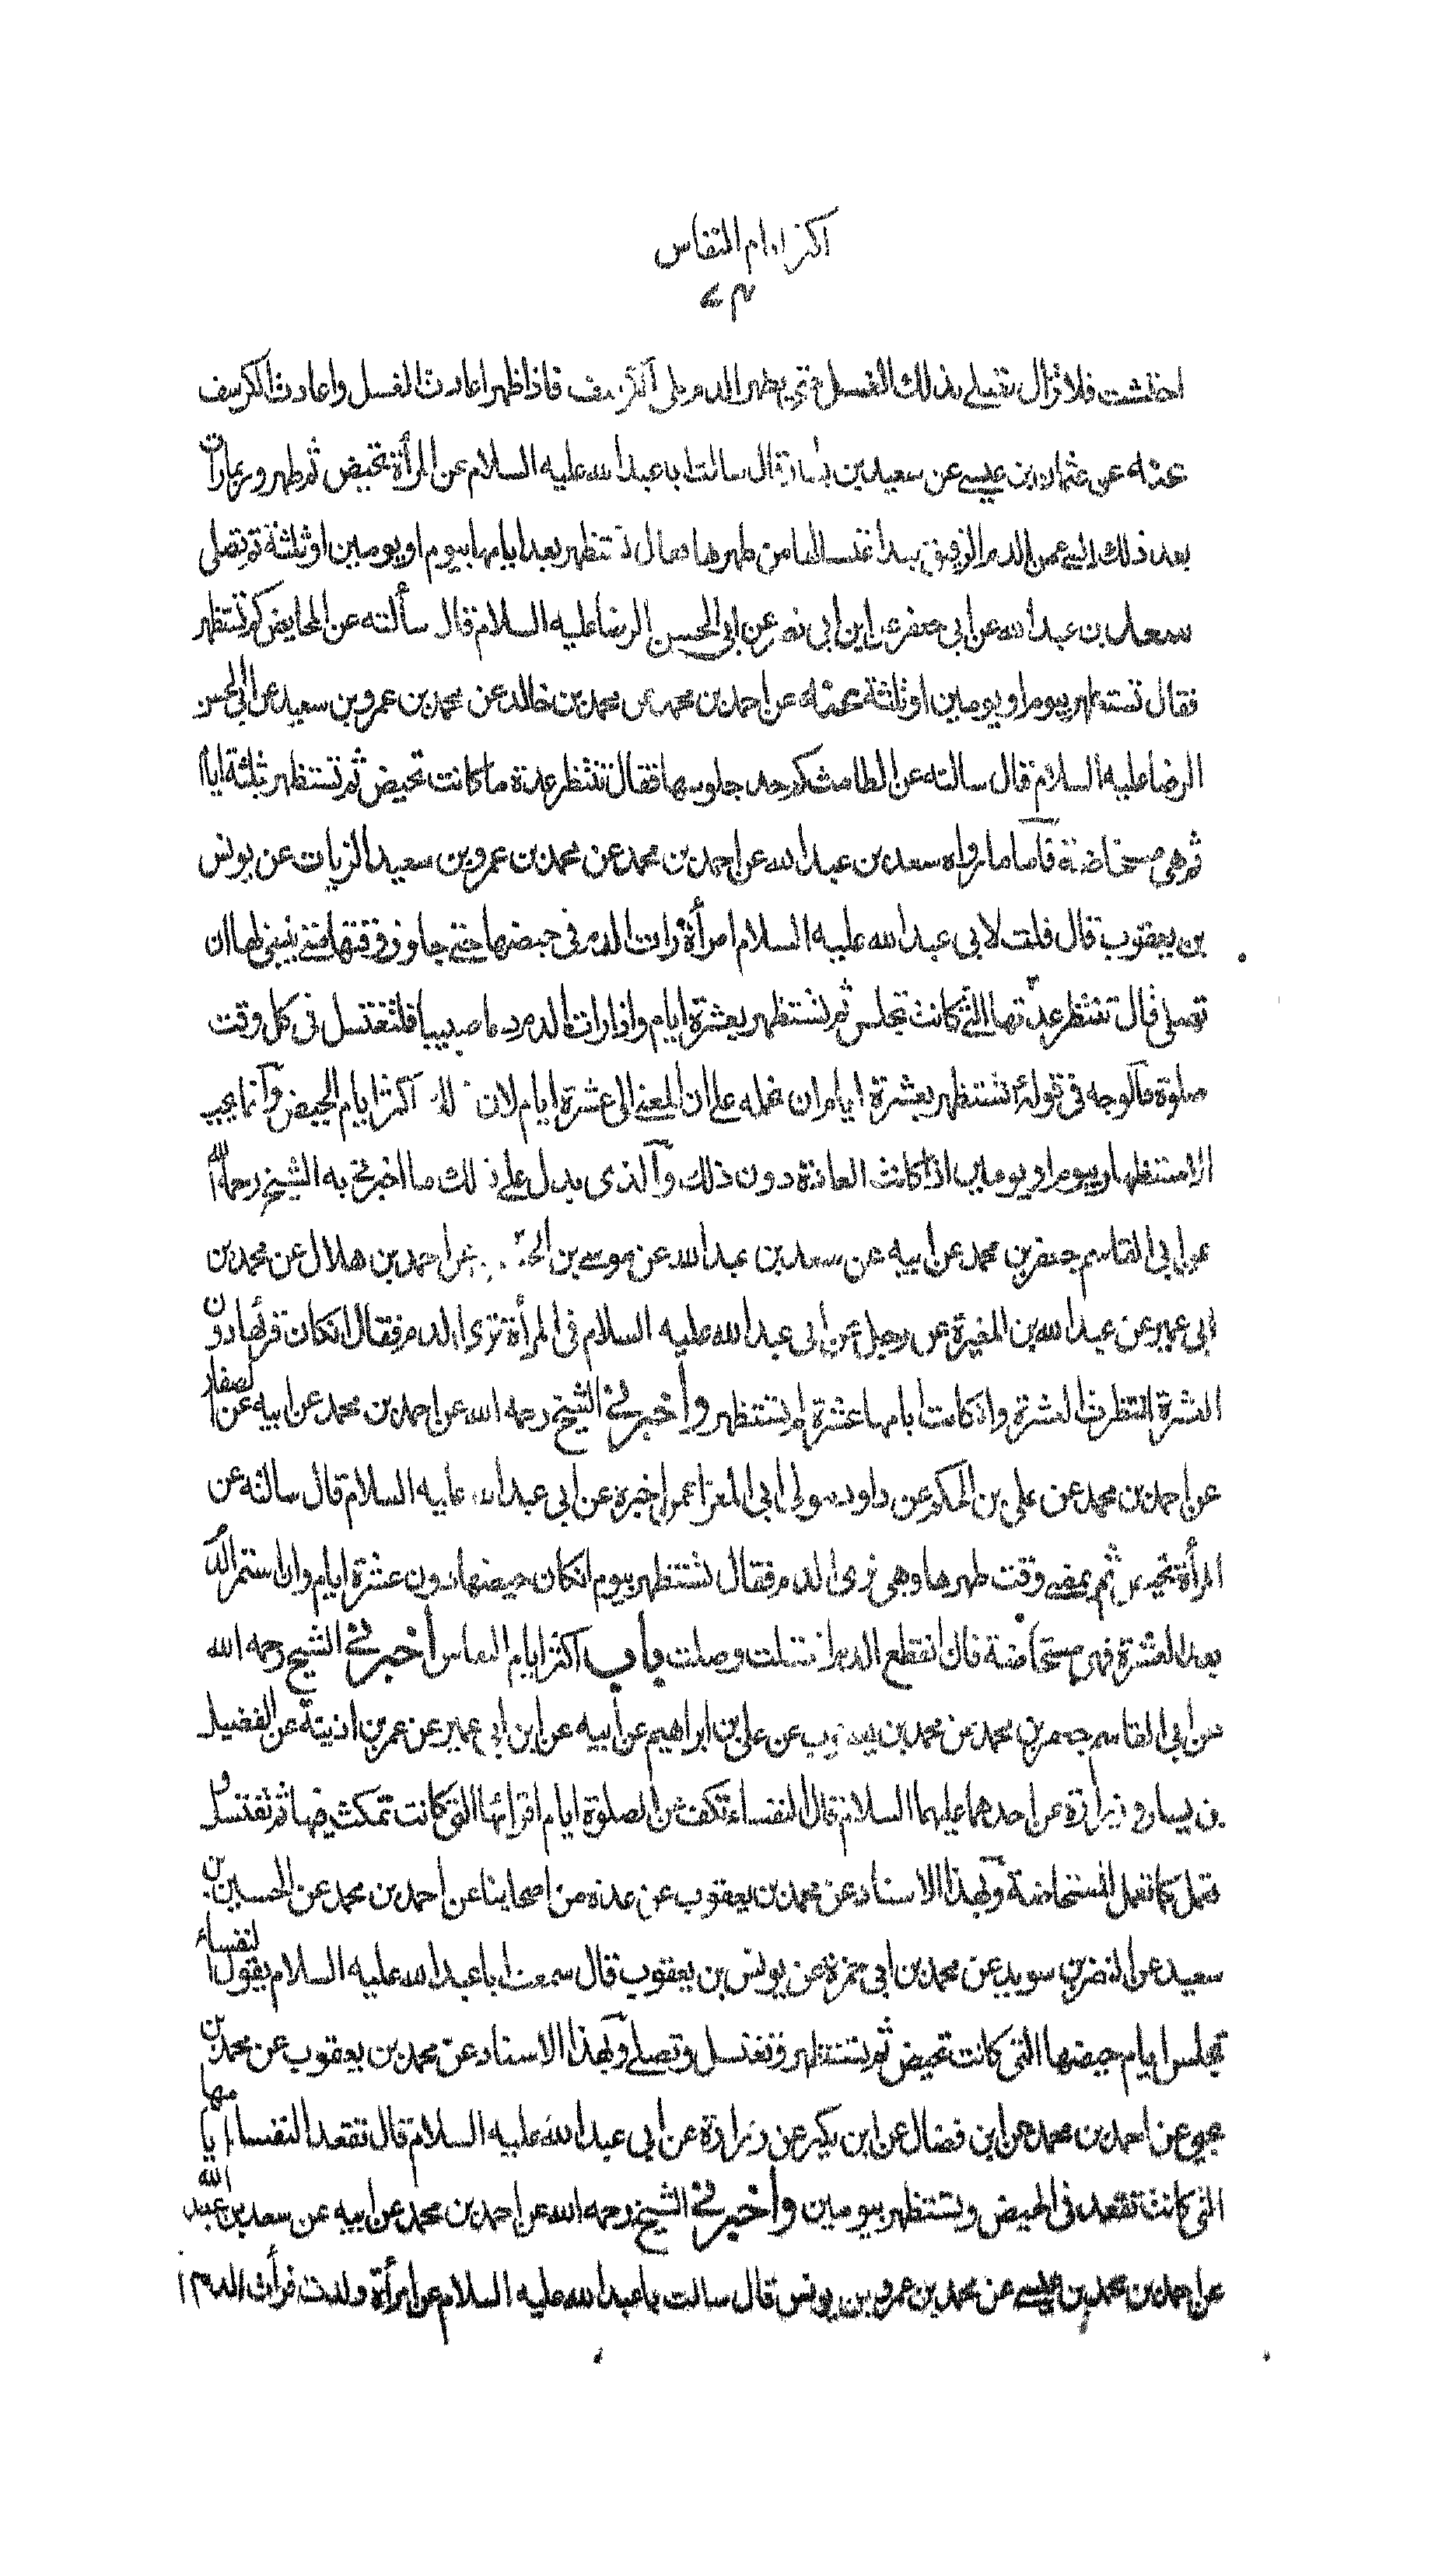 اكثر ايام النفاس
٧٣
احتشت فلا تزال تصلي بذلك الغسل حتى يظهر الدم على الكرسف فاذا ظهر اعادت الغسل واعادت الكرسف
عنه عن عثمان بن عيسى عن سعيد بن يسار قال سالت ابا عبد الله عليه السلام عن المرأة تحيض ثم تطهر وربما رات
بعد ذلك الشئ من الدم الرقيق بعد اغتسالها من طهرها فقال تستظهر بعد ايامها بيوم او يومين او ثلثة ثم تصلي
سعد بن عبد الله عن ابي جعفر عن ابن ابي نصر عن ابي الحسن الرضا عليه السلام قال سألته عن الحايض كم تستظهر
فقال تستظهر بيوم او يومين او ثلثة عنه عن احمد بن محمد عن محمد بن خالد عن محمد بن عمرو بن سعيد عن ابي الحسن
الرضا عليه السلام قال سالته عن الطامث كم حد جلوسها فقال تنتظر عدة ما كانت تحيض ثم تستظهر بثلثة ايام
ثم هي مستحاضة فاما ما رواه سعد بن عبد الله عن احمد بن محمد عن محمد بن عمرو بن سعيد الزيات عن يونس
بن يعقوب قال قلت لابي عبد الله عليه السلام امرأة رات الدم في حيضها حتى جاوز وقتها متى ينبغي لها ان
تصلي قال تنتظر عدتها التي كانت تجلس ثم تستظهر بعشرة ايام واذا رات الدم دما صبيبا فلتغتسل في كل وقت
صلوة فالوجه في قوله تستظهر بعشرة ايام ان نحمله على ان المعنى الى عشرة ايام لان ذلك اكثر ايام الحيض وانما يجب
الاستظهار بيوم او يومين اذا كانت العادة دون ذلك والذي يدل على ذلك ما اخبرني به الشيخ رحمه الله
عن ابي القاسم جعفر بن محمد عن ابيه عن سعد بن عبد الله عن موسى بن الحسن عن احمد بن هلال عن محمد بن
ابي عمير عن عبد الله بن المغيرة عن رجل عن ابي عبد الله عليه السلام في المرأة ترى الدم فقال ان كان قرئها دون
العشرة انتظرت العشرة وان كانت ايامها عشرة لم تستظهر وأخبرني الشيخ رحمه الله عن احمد بن محمد عن ابيه عن الصفار
عن احمد بن محمد عن علي بن الحكم عن داود مولى ابي المعزا عمن اخبره عن ابي عبد الله عليه السلام قال سالته عن
المرأة تحيض ثم يمضي وقت طهرها وهي ترى الدم فقال تستظهر بيوم ان كان حيضها دون عشرة ايام وان استمر الدم
بعد العشرة فهي مستحاضة فان انقطع الدم اغتسلت وصلت باب اكثر ايام النفاس أخبرني الشيخ رحمه الله
عن ابي القاسم جعفر بن محمد عن محمد بن يعقوب عن علي بن ابراهيم عن أبيه عن ابن ابي عمير عن عمر بن اذينة عن الفضيل
بن يسار وزرارة عن احدهما عليهما السلام قال النفساء تكف عن الصلوة ايام اقرائها التي كانت تمكث فيها ثم تغتسل و
تعمل كما تعمل المستحاضة وبهذا الاسناد عن محمد بن يعقوب عن عدة من اصحابنا عن احمد بن محمد عن الحسين بن
سعيد عن النضر بن سويد عن محمد بن ابي حمزة عن يونس بن يعقوب قال سمعت ابا عبد الله عليه السلام يقول النفساء
تجلس ايام حيضها التي كانت تحيض ثم تستظهر وتغتسل وتصلي وبهذا الاسناد عن محمد بن يعقوب عن محمد بن
يحيى عن احمد بن محمد عن ابن فضال عن ابن بكير عن زرارة عن ابي عبد الله عليه السلام قال تقعد النفساء ايامها
التي كانت تقعد في الحيض وتستظهر بيومين وأخبرني الشيخ رحمه الله عن احمد بن محمد عن ابيه عن سعد بن عبد الله
عن احمد بن محمد بن عيسى عن محمد بن عمرو بن يونس قال سالت ابا عبد الله عليه السلام عن امرأة ولدت فرأت الدم